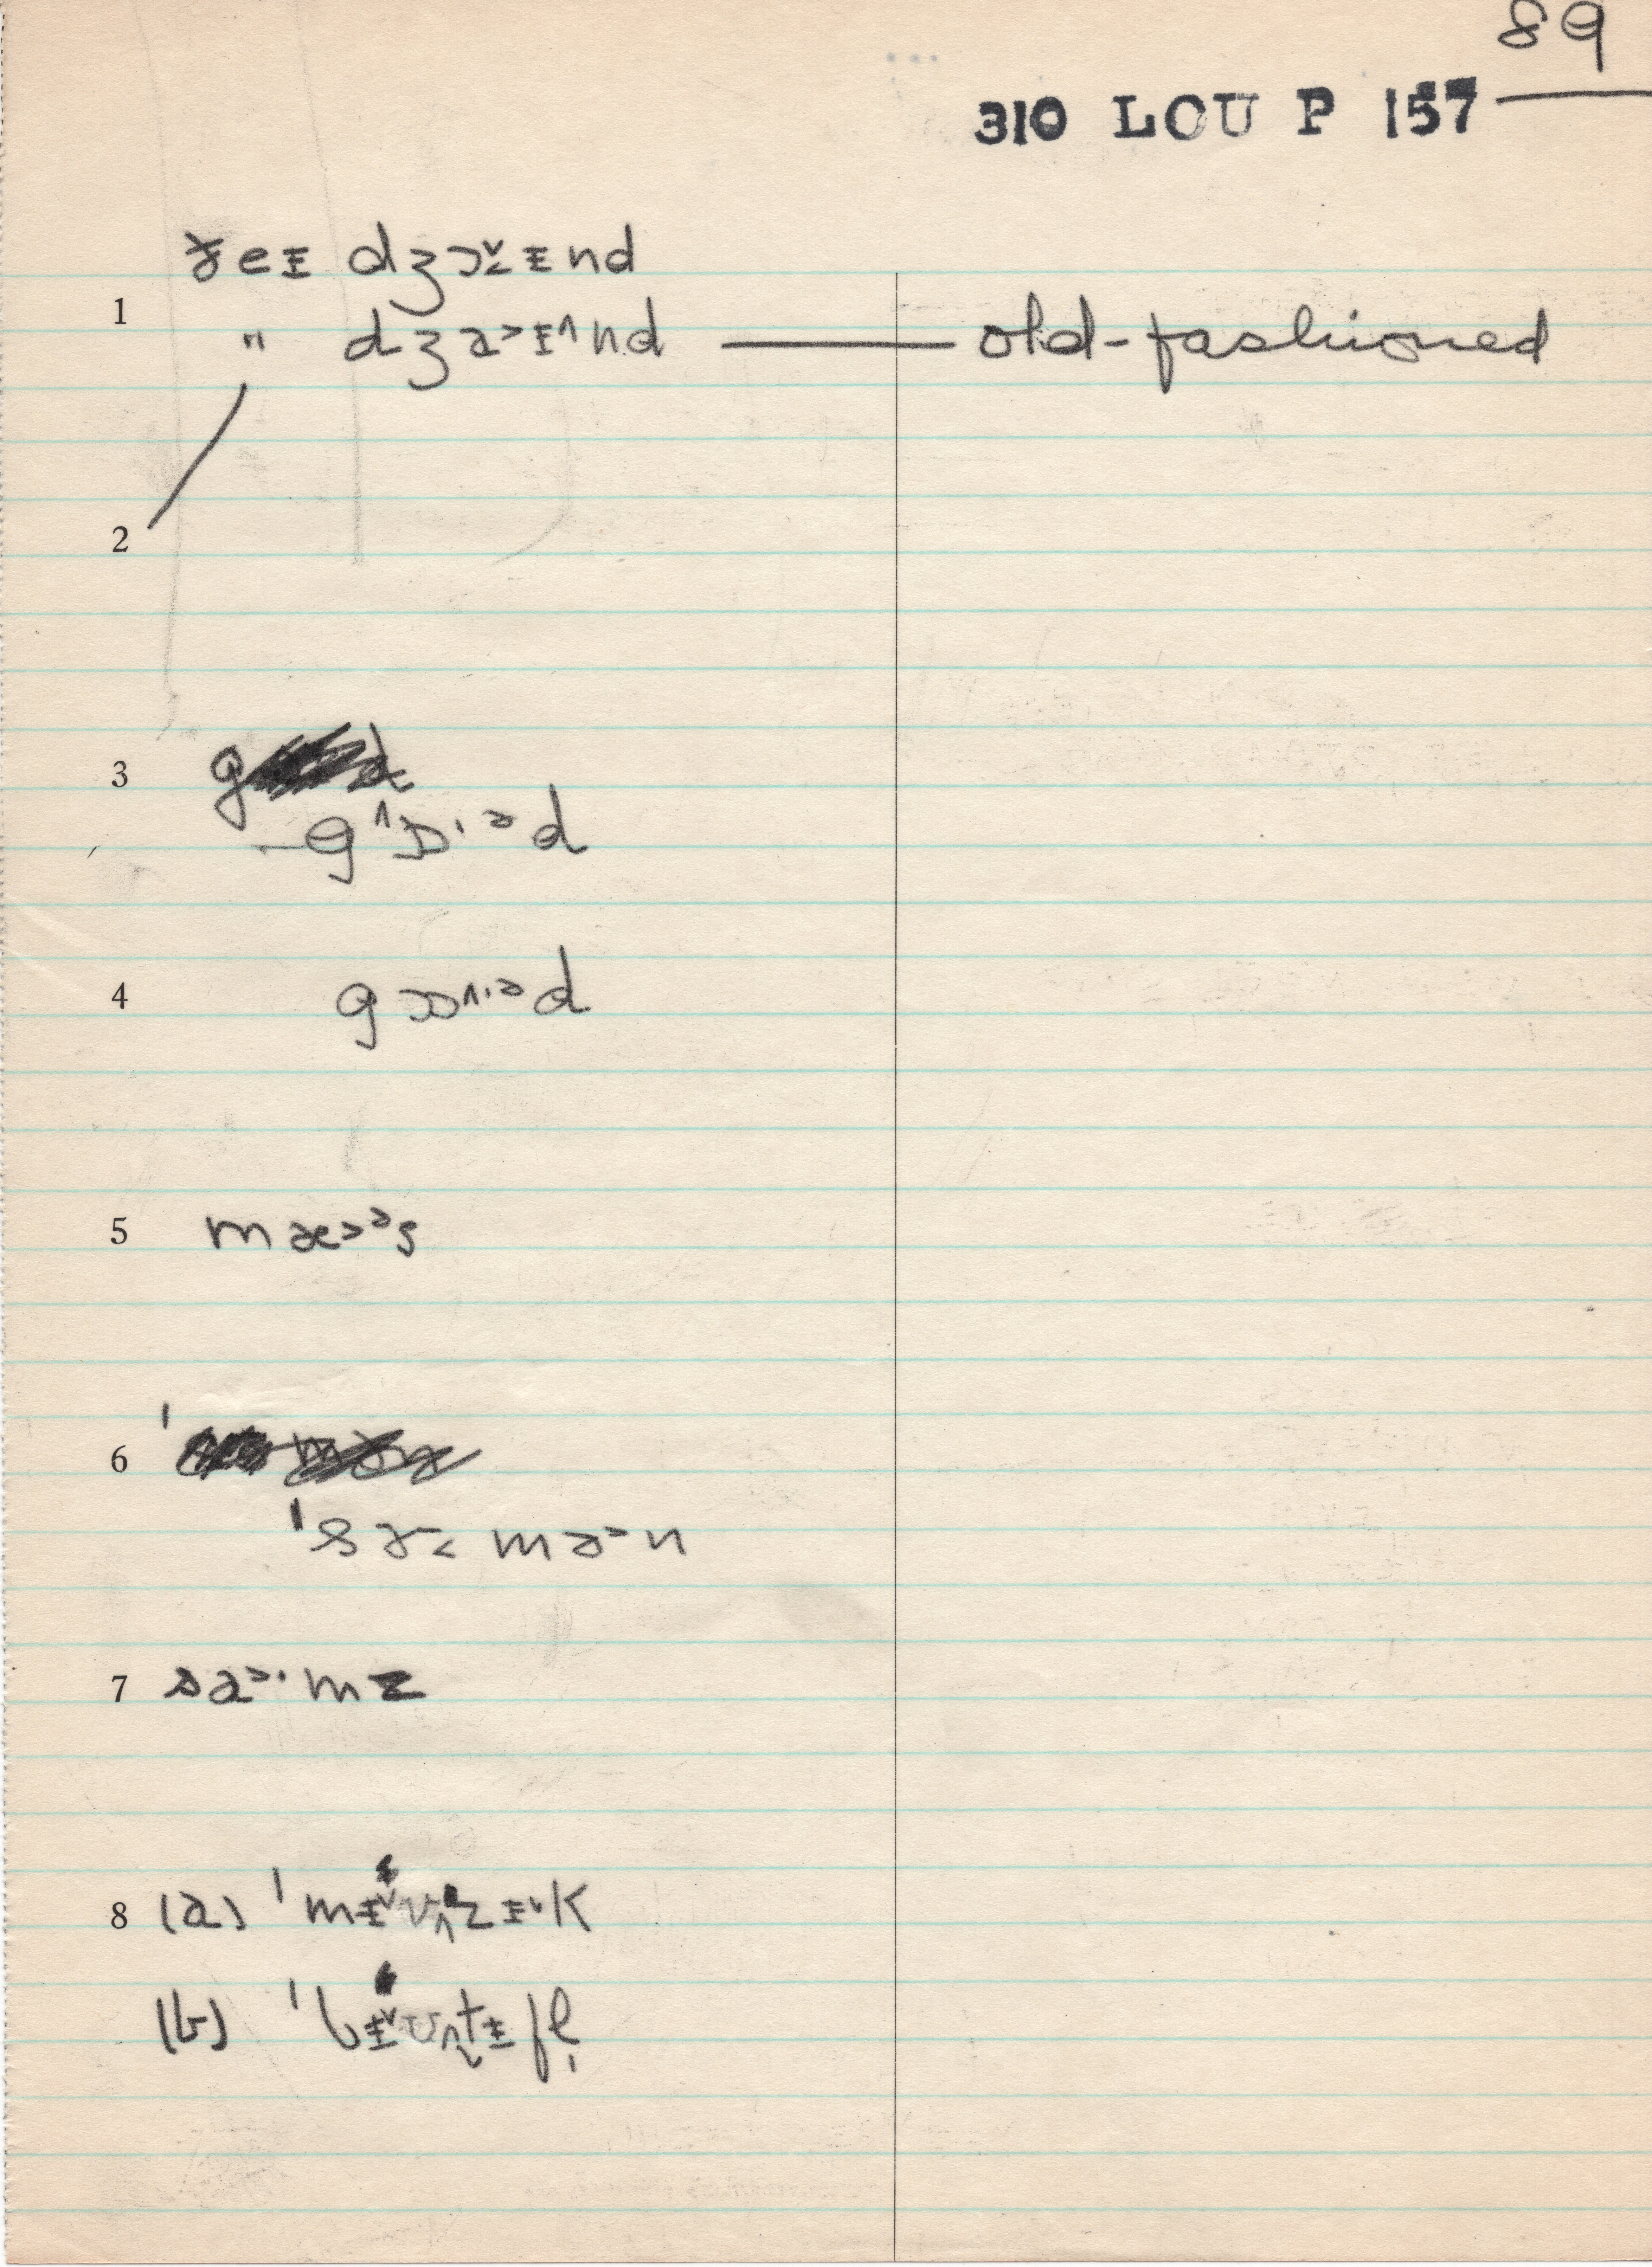 89
310 LOU P 157
ɤeɪ dʒɔ˅˂ɪnd
1
" dʒa˃ɪ˄nd — old-fashioned
2
3
g˄ɒ·ᵊd
4 gɒ˄·ᵊd
5 mæ˃ᵊs
6
ˈsɤ˂ mə˃n
7 sa˃·mz
8 (a) ˈmɨ˅ʊ˄zɨ˅k
(b) ˈbɨ˅ʊ˄t̬ɨfl̩